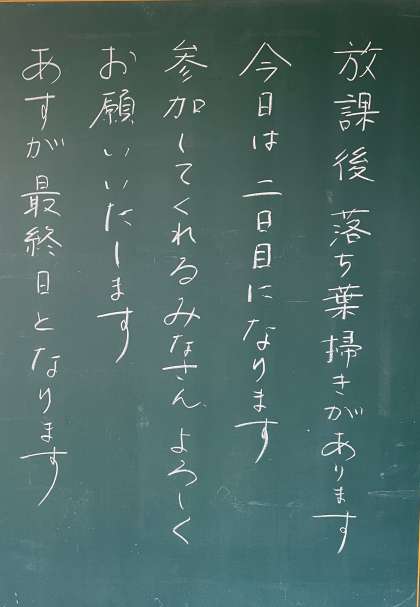 放課後 落ち葉掃きがあります
今日は 二日目になります
参加してくれるみなさん、よろしく
お願いいたします
あすが 最終日となります